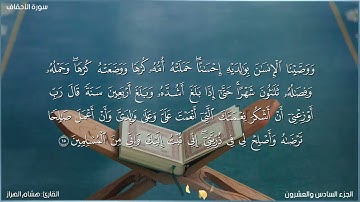 سورة الأحقاف
وَوَصَّيْنَا ٱلْإِنسَٰنَ بِوَٰلِدَيْهِ إِحْسَٰنًا ۖ حَمَلَتْهُ أُمُّهُۥ كُرْهًا وَوَضَعَتْهُ كُرْهًا ۖ وَحَمْلُهُۥ
وَفِصَٰلُهُۥ ثَلَٰثُونَ شَهْرًا ۚ حَتَّىٰٓ إِذَا بَلَغَ أَشُدَّهُۥ وَبَلَغَ أَرْبَعِينَ سَنَةً قَالَ رَبِّ
أَوْزِعْنِىٓ أَنْ أَشْكُرَ نِعْمَتَكَ ٱلَّتِىٓ أَنْعَمْتَ عَلَىَّ وَعَلَىٰ وَٰلِدَىَّ وَأَنْ أَعْمَلَ صَٰلِحًا
تَرْضَىٰهُ وَأَصْلِحْ لِى فِى ذُرِّيَّتِىٓ ۖ إِنِّى تُبْتُ إِلَيْكَ وَإِنِّى مِنَ ٱلْمُسْلِمِينَ ١٥
الجزء السادس والعشرون
القارئ: هشام الهراز